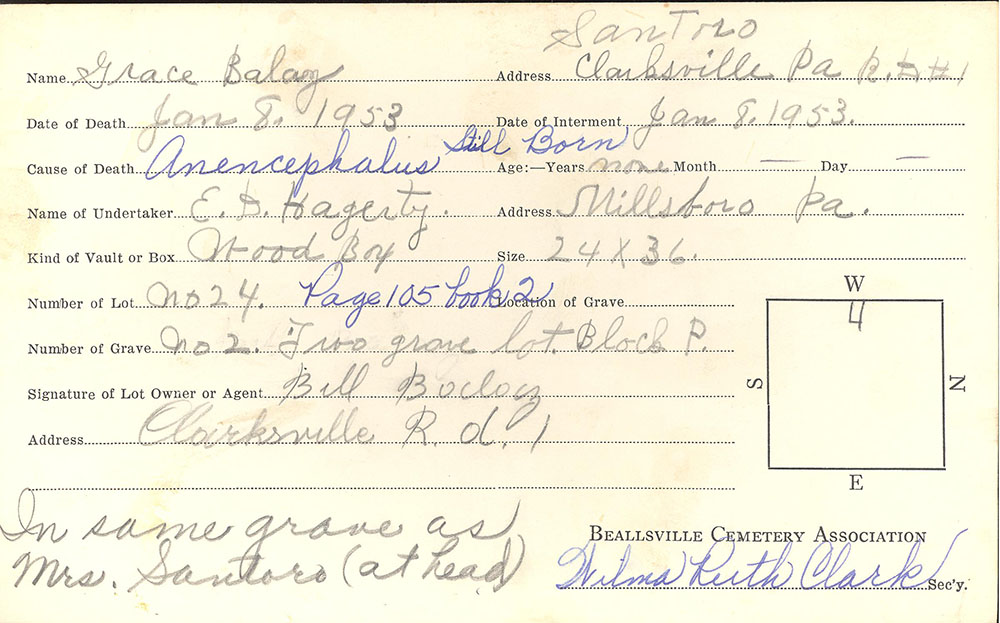 Santoro
Name Grace Balazy Address Clarksville Pa R.D #1
Date of Death Jan 8, 1953 Date of Interment Jan 8, 1953.
Cause of Death Anencephalus Still Born Age:—Years none Month — Day —
Name of Undertaker E. D. Hagerty. Address Millsboro Pa.
Kind of Vault or Box Wood Box Size 24 X 36.
Number of Lot No 24. Page 105 book 2 Location of Grave
Number of Grave No 2. Two grave lot. Block P.
Signature of Lot Owner or Agent Bill
Address Clarksville R. d. 1
W
4
S
N
E
In same grave as
Mrs. Santoro (at head)
BEALLSVILLE CEMETERY ASSOCIATION
Wilma Ruth Clark Sec'y.